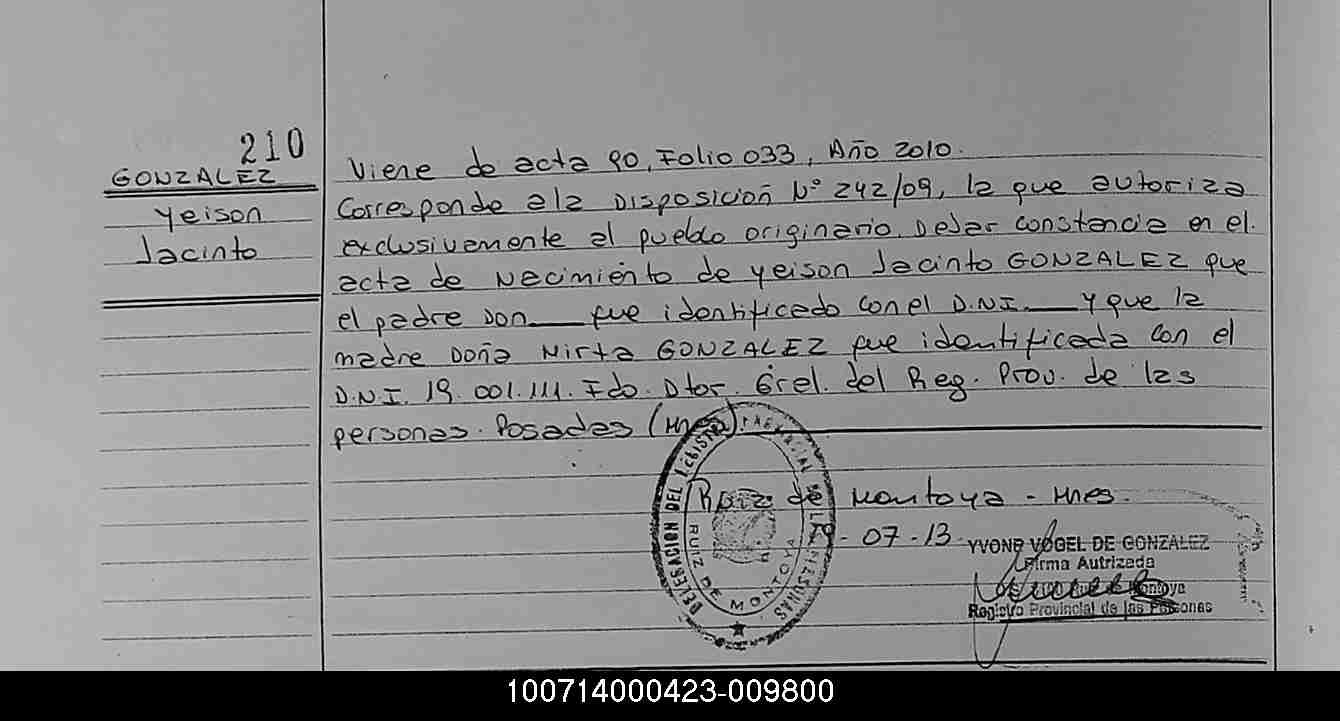 210
GONZALEZ
Yeison
Jacinto
Viene de acta 90, Folio 033, Año 2010.
Corresponde a la Disposición Nº 242/09, la que autoriza
exclusivamente al pueblo originario, Dejar constancia en el
acta de Nacimiento de Yeison Jacinto GONZALEZ que
el padre Don___ fue identificado con el D.N.I.___ y que la
madre Doña Mirta GONZALEZ fue identificada con el
D.N.I. 19.001.111. Fdo. Dtor. Gral. del Reg. Prov. de las
personas. Posadas (Mnes).
Ruiz de Montoya - Mnes.
- 07 - 13
DELEGACION DEL REGISTRO PROVINCIAL DE LAS PERSONAS
RUIZ DE MONTOYA
YVONE VOGEL DE GONZALEZ
Firma Autrizada
Montoya
Registro Provincial de las Personas
100714000423-009800